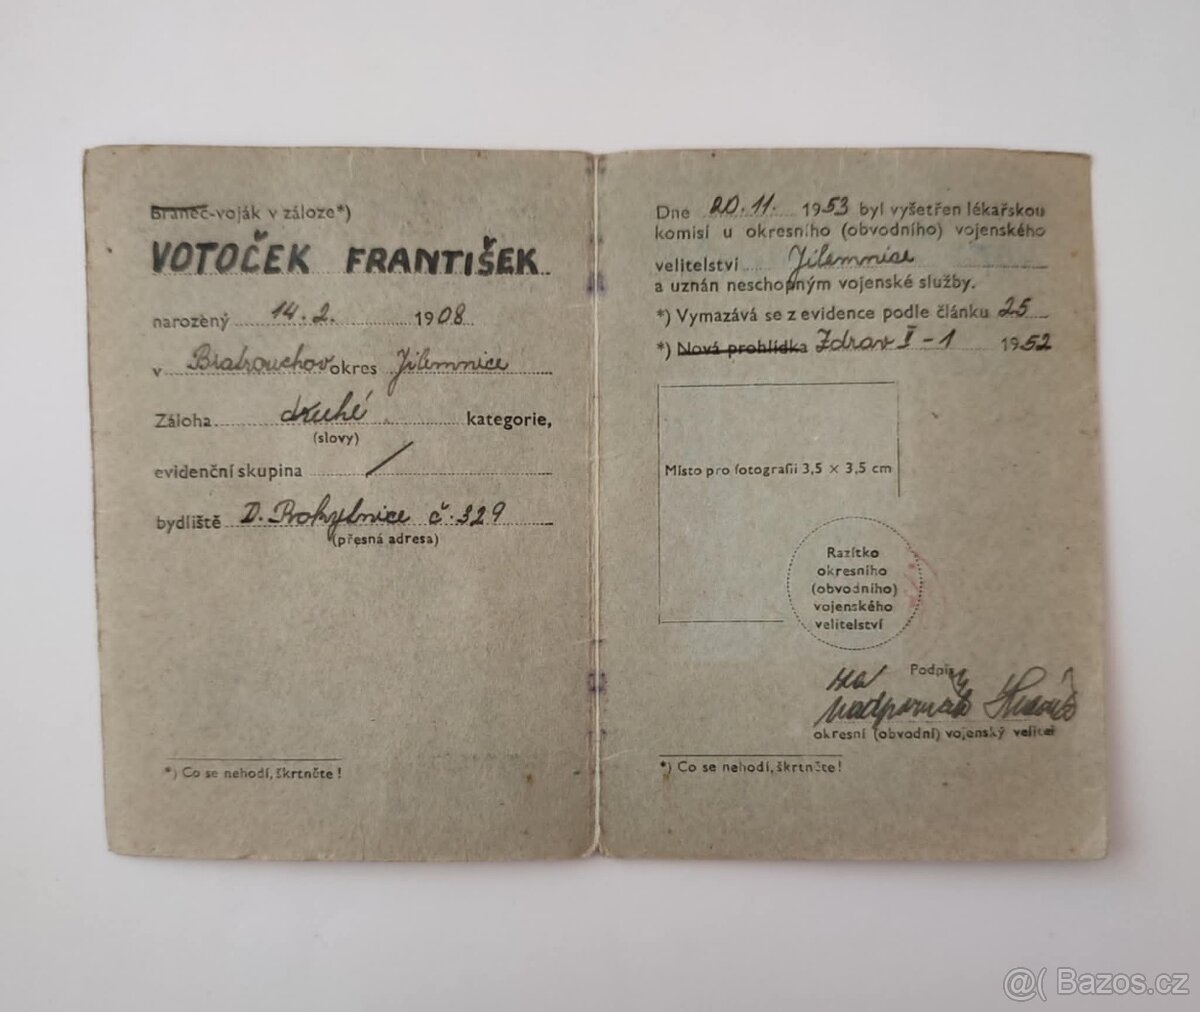 Branec-voják v záloze*)
VOTOČEK FRANTIŠEK
narozený 14.2. 1908
v Bratrouchov okres Jilemnice
Záloha druhé kategorie,
(slovy)
evidenční skupina /
bydliště D. Rokytnice č. 329
(přesná adresa)
*) Co se nehodí, škrtněte!
Dne 20.11. 1953 byl vyšetřen lékařskou
komisí u okresního (obvodního) vojenského
velitelství Jilemnice
a uznán neschopným vojenské služby.
*) Vymazává se z evidence podle článku 25
*) Nová prohlídka Zdrav I-1 1952
Místo pro fotografii 3,5 × 3,5 cm
Razítko
okresního
(obvodního)
vojenského
velitelství
Podpis
nadporučík
okresní (obvodní) vojenský velitel
*) Co se nehodí, škrtněte!
@( Bazos.cz